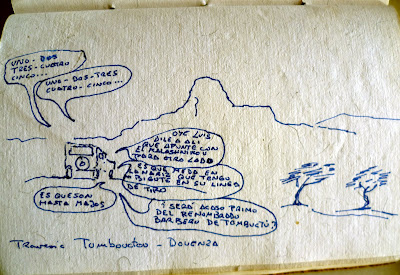 UNO-DOS
TRES-CUATRO
CINCO...
UNA-DOS-TRES
CUATRO-CINCO...
OYE LUIS
DILE A ALI
QUE APUNTE CON
EL KALASHNIKOV
PARA OTRO LADO
ES QUE MEDA EN
LA NARIZ QUE TENGO
MI GAOTE EN SU LINEA
DE TIRO
ES QUESON
MASTA MADOS
? SERÁ ACASO PRIMO
DEL RENOMBRADO
BARBERO DE TOMBUCTÚ?
Travesia Tombouctou - DOUENZA